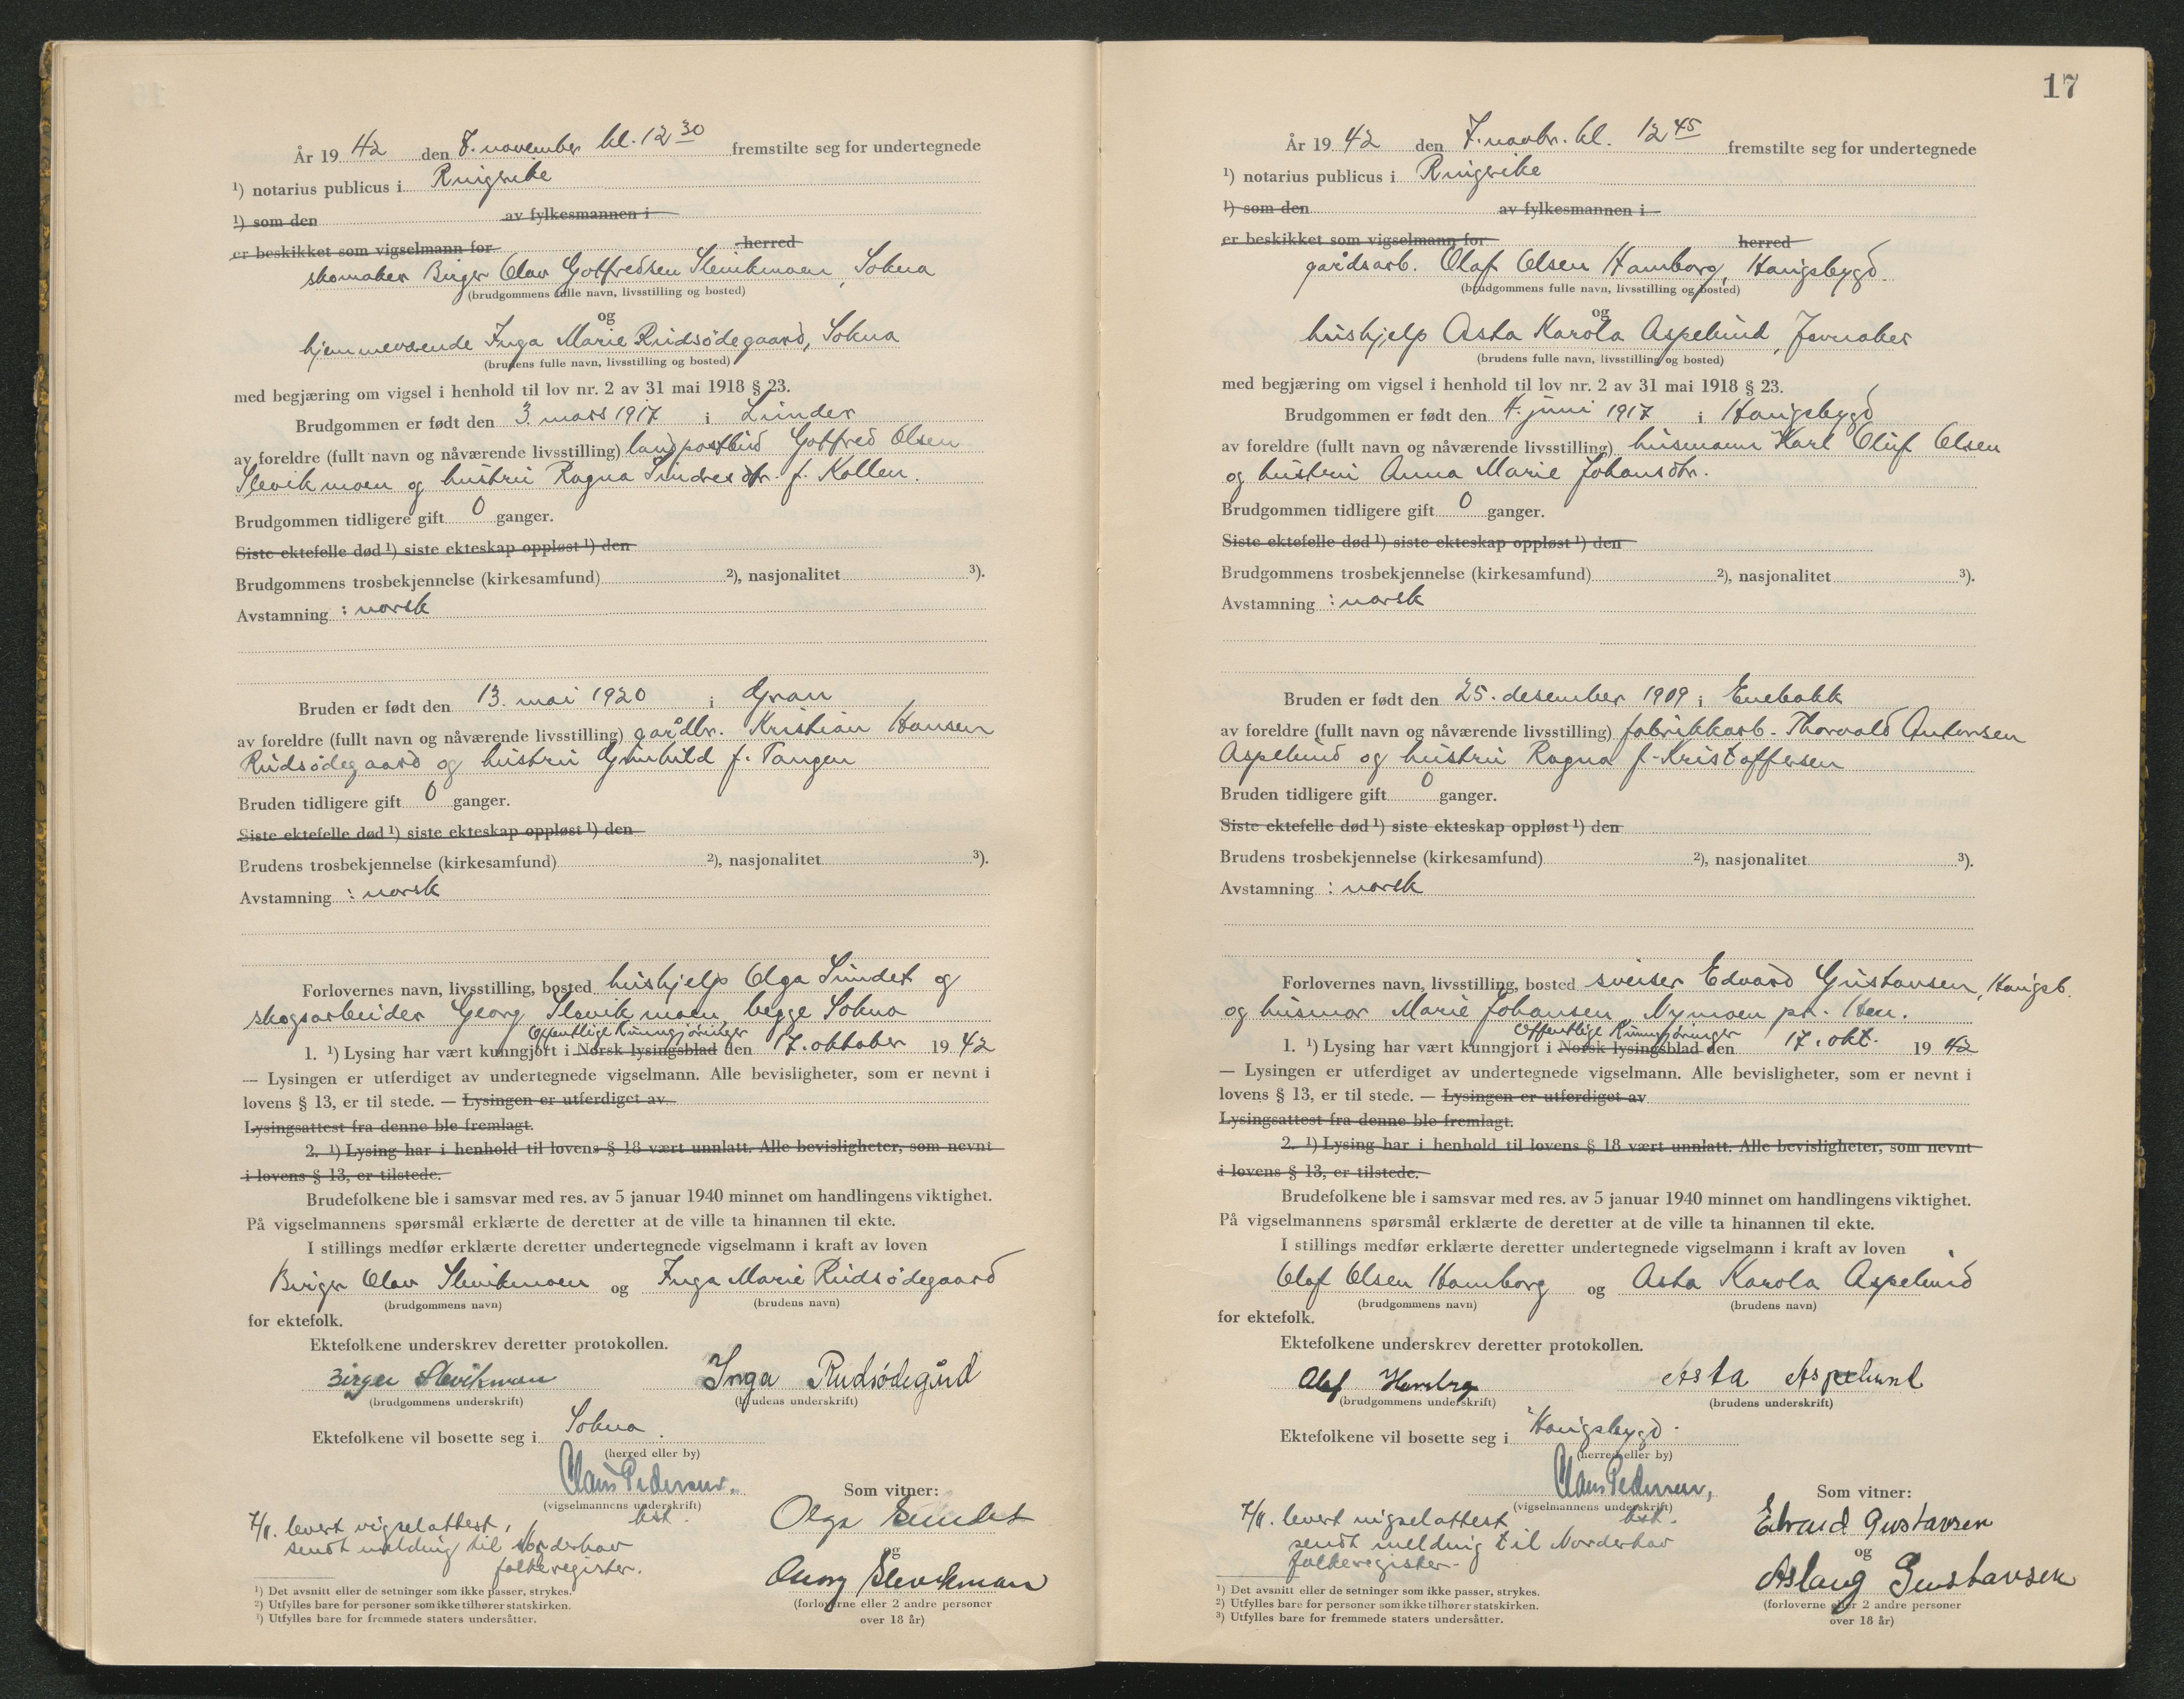 År 19 42 den 7. november kl. 12 30 fremstilte seg for undertegnede
¹) notarius publicus i Ringerike
¹) som den av fylkesmannen i
er beskikket som vigselmann for herred
skomaker Birger Olav Gotfredsen Slevikmoen, Sokna
(brudgommens fulle navn, livsstilling og bosted)
og
hjemmeværende Inga Marie Rudsødegaard, Sokna
(brudens fulle navn, livsstilling og bosted)
med begjæring om vigsel i henhold til lov nr. 2 av 31 mai 1918 § 23.
Brudgommen er født den 3. mars 1917 i Lunder
av foreldre (fullt navn og nåværende livsstilling) landpostbud Gotfred Olsen
Slevikmoen og hustru Ragna Sindresdtr. f. Kollen.
Brudgommen tidligere gift 0 ganger.
Siste ektefelle død ¹) siste ekteskap oppløst ¹) den
Brudgommens trosbekjennelse (kirkesamfund) ²), nasjonalitet ³).
Avstamning : norsk
Bruden er født den 13. mai 1920 i Gran
av foreldre (fullt navn og nåværende livsstilling) gårdbr. Kristian Hansen
Rudsødegaard og hustru Gunhild f. Tangen
Bruden tidligere gift 0 ganger.
Siste ektefelle død ¹) siste ekteskap oppløst ¹) den
Brudens trosbekjennelse (kirkesamfund) ²), nasjonalitet ³).
Avstamning : norsk
Forlovernes navn, livsstilling, bosted hushjelp Olga Sundet og
skogsarbeider Georg Slevikmoen begge Sokna
Offentlige Kunngjøringer
1. ¹) Lysing har vært kunngjort i Norsk lysingsblad den 17. oktober 19 42
— Lysingen er utferdiget av undertegnede vigselmann. Alle bevisligheter, som er nevnt i
lovens § 13, er til stede. — Lysingen er utferdiget av
Lysingsattest fra denne ble fremlagt.
2. ¹) Lysing har i henhold til lovens § 18 vært unnlatt. Alle bevisligheter, som nevnt
i lovens § 13, er tilstede.
Brudefolkene ble i samsvar med res. av 5 januar 1940 minnet om handlingens viktighet.
På vigselmannens spørsmål erklærte de deretter at de ville ta hinannen til ekte.
I stillings medfør erklærte deretter undertegnede vigselmann i kraft av loven
Birger Olav Slevikmoen og Inga Marie Rudsødegaard
(brudgommens navn) (brudens navn)
for ektefolk.
Ektefolkene underskrev deretter protokollen.
Birger Slevikmoen Inga Rudsødegård
(brudgommens underskrift) (brudens underskrift)
Ektefolkene vil bosette seg i Sokna.
(herred eller by)
Claus Pedersen.
(vigselmannens underskrift)
kst.
Som vitner:
Olga Sundet
og
Georg Slevikmoen
(forloverne eller 2 andre personer
over 18 år)
7/11. levert vigselattest,
sendt melding til Norderhov
folkeregister.
¹) Det avsnitt eller de setninger som ikke passer, strykes.
²) Utfylles bare for personer som ikke tilhører statskirken.
³) Utfylles bare for fremmede staters undersåtter.
17
År 19 42 den 7. novbr. kl. 12 45 fremstilte seg for undertegnede
¹) notarius publicus i Ringerike
¹) som den av fylkesmannen i
er beskikket som vigselmann for herred
gårdsarb. Olaf Olsen Hamborg, Haugsbygd.
(brudgommens fulle navn, livsstilling og bosted)
og
hushjelp Asta Karola Aspelund, Jevnaker
(brudens fulle navn, livsstilling og bosted)
med begjæring om vigsel i henhold til lov nr. 2 av 31 mai 1918 § 23.
Brudgommen er født den 4. juni 1917 i Haugsbygd
av foreldre (fullt navn og nåværende livsstilling) husmann Karl Oluf Olsen
og hustru Anna Marie Johansdtr.
Brudgommen tidligere gift 0 ganger.
Siste ektefelle død ¹) siste ekteskap oppløst ¹) den
Brudgommens trosbekjennelse (kirkesamfund) ²), nasjonalitet ³).
Avstamning : norsk
Bruden er født den 25. desember 1909 i Enebakk
av foreldre (fullt navn og nåværende livsstilling) fabrikkarb. Thorvald Antonsen
Aspelund og hustru Ragna f. Kristoffersen
Bruden tidligere gift 0 ganger.
Siste ektefelle død ¹) siste ekteskap oppløst ¹) den
Brudens trosbekjennelse (kirkesamfund) ²), nasjonalitet ³).
Avstamning : norsk
Forlovernes navn, livsstilling, bosted sveiser Edvard Gustavsen, Haugsb.
og husmor Marie Johansen, Nymoen pr. Hen.
Offentlige Kunngjøringer
1. ¹) Lysing har vært kunngjort i Norsk lysingsblad den 17. okt. 19 42
— Lysingen er utferdiget av undertegnede vigselmann. Alle bevisligheter, som er nevnt i
lovens § 13, er til stede. — Lysingen er utferdiget av
Lysingsattest fra denne ble fremlagt.
2. ¹) Lysing har i henhold til lovens § 18 vært unnlatt. Alle bevisligheter, som nevnt
i lovens § 13, er tilstede.
Brudefolkene ble i samsvar med res. av 5 januar 1940 minnet om handlingens viktighet.
På vigselmannens spørsmål erklærte de deretter at de ville ta hinannen til ekte.
I stillings medfør erklærte deretter undertegnede vigselmann i kraft av loven
Olaf Olsen Hamborg og Asta Karola Aspelund
(brudgommens navn) (brudens navn)
for ektefolk.
Ektefolkene underskrev deretter protokollen.
Olaf Hamborg Asta Aspelund
(brudgommens underskrift) (brudens underskrift)
Ektefolkene vil bosette seg i Haugsbygd.
(herred eller by)
Claus Pedersen,
(vigselmannens underskrift)
kst.
Som vitner:
Edvard Gustavsen
og
Aslaug Gustavsen
(forloverne eller 2 andre personer
over 18 år)
7/11. levert vigselattest
sendt melding til Norderhov
folkeregister.
¹) Det avsnitt eller de setninger som ikke passer, strykes.
²) Utfylles bare for personer som ikke tilhører statskirken.
³) Utfylles bare for fremmede staters undersåtter.